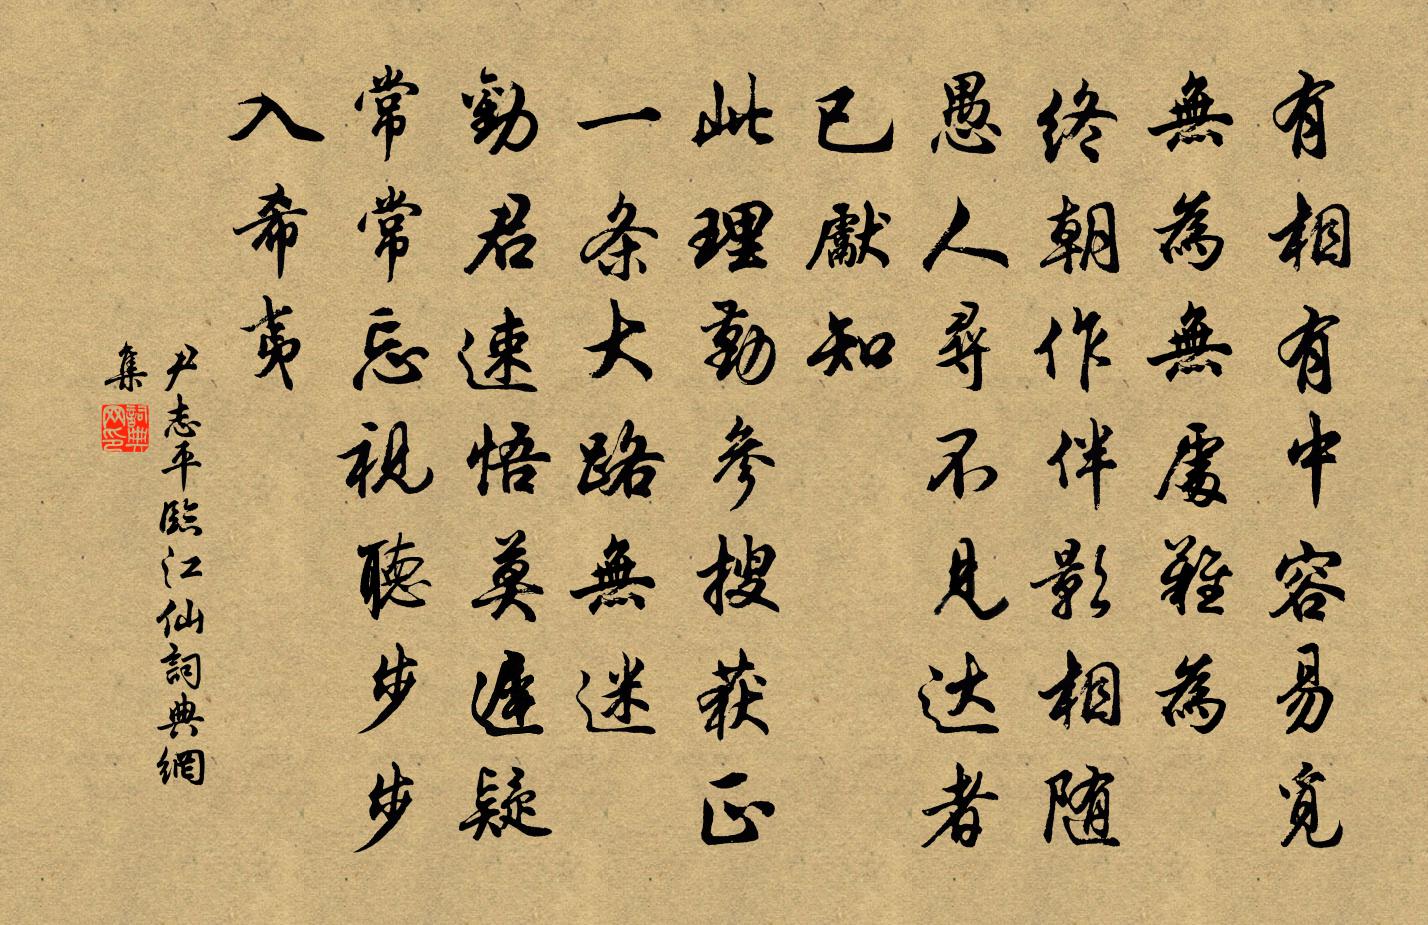 有相有中容易覓
無為無處難為
終朝作伴影相随
愚人尋不見达者
已獻知
此理勤參搜获正
一条大路無迷
勸君速悟莫遲疑
常常忘視聽步步
入希夷
尹志平臨江仙詞典網
集
詞典网印